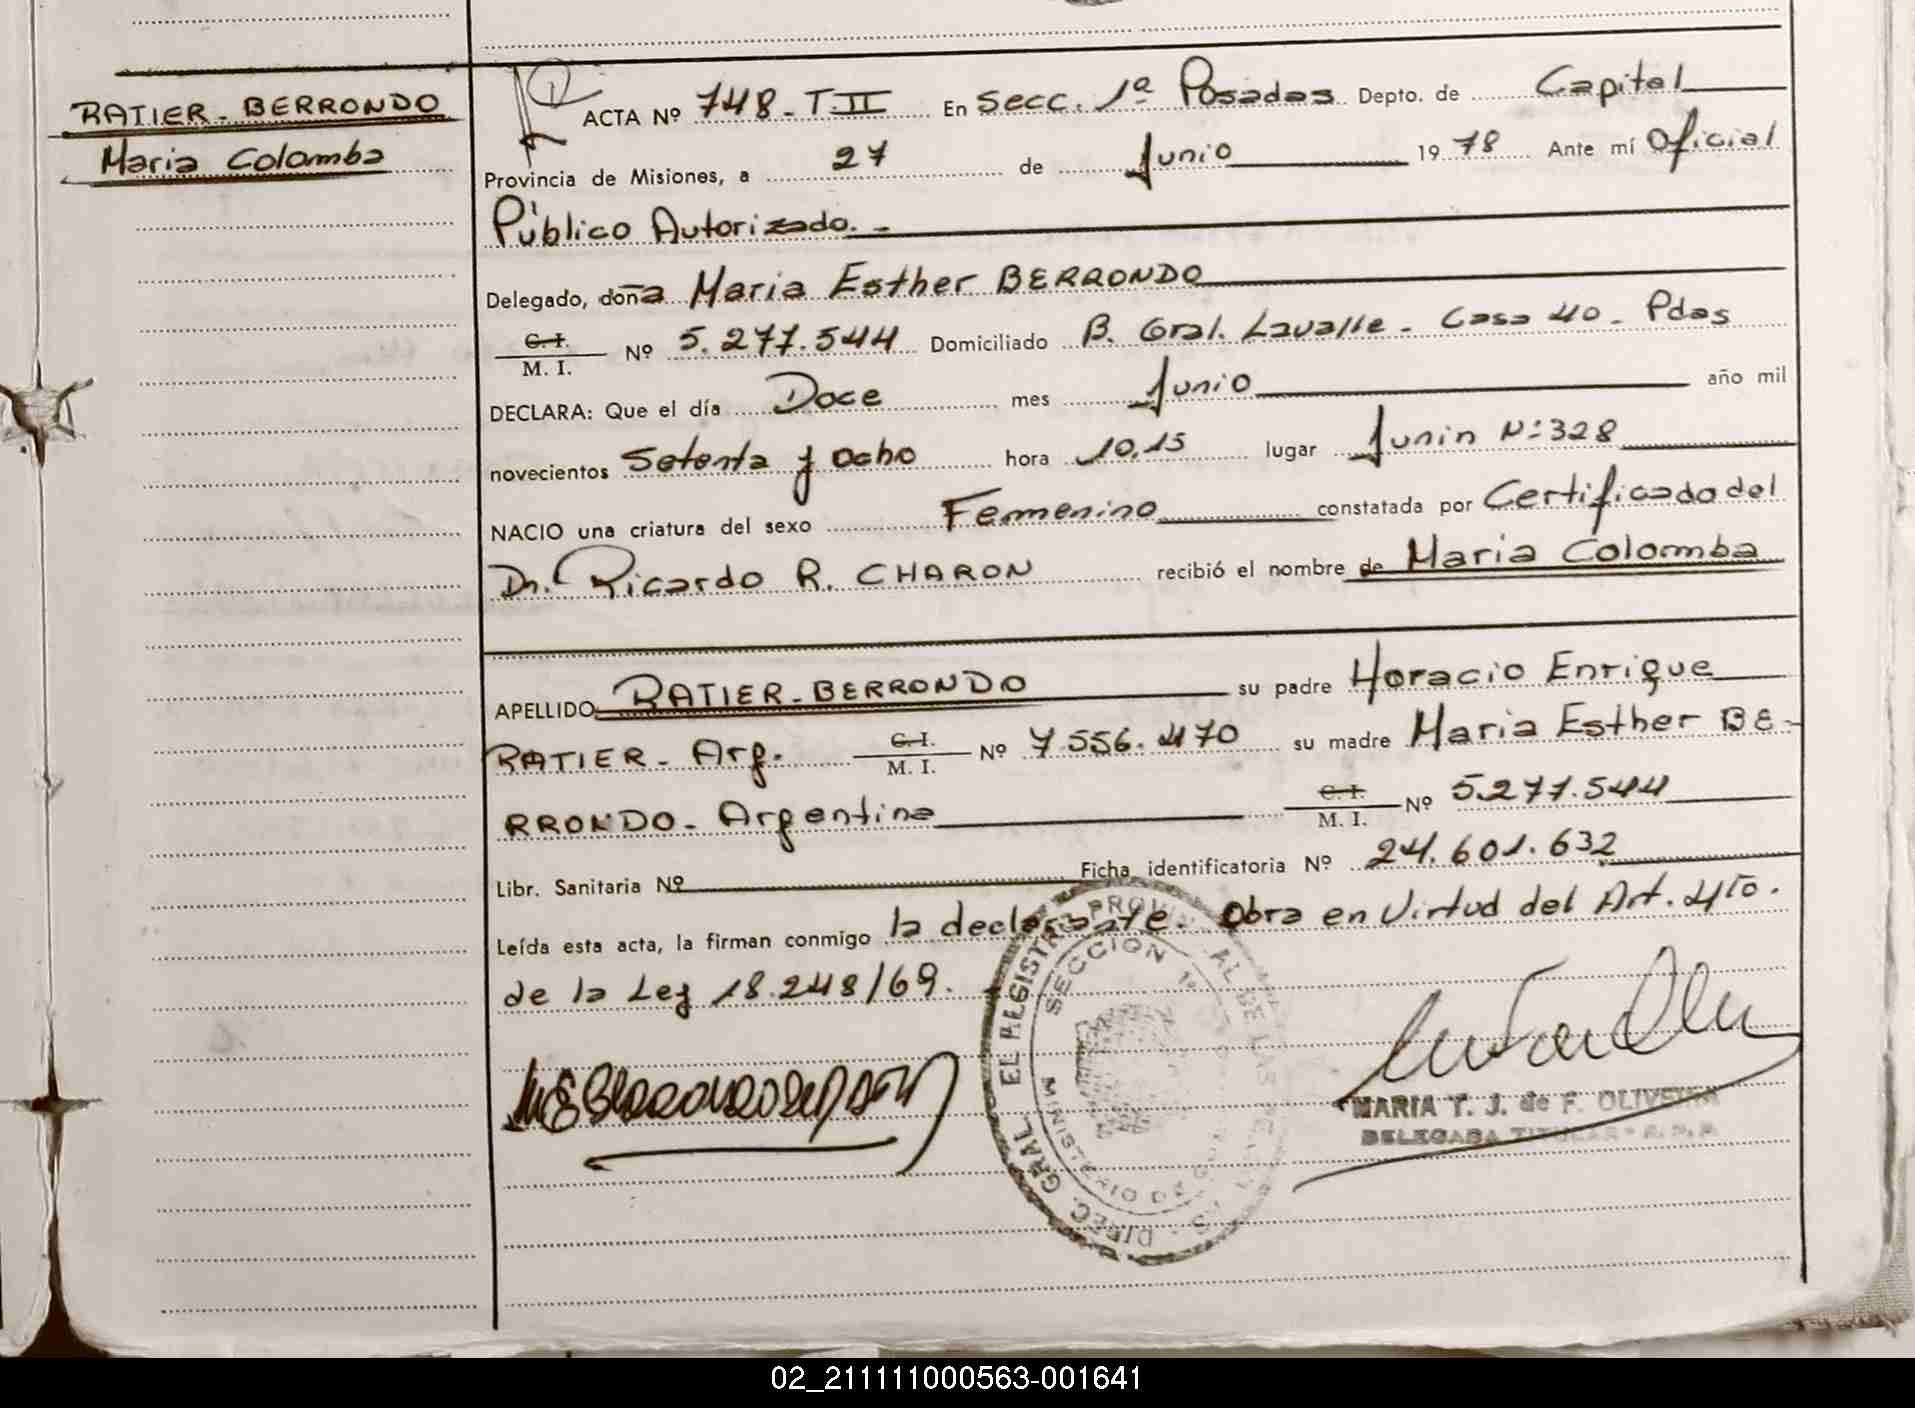 RATIER-BERRONDO
Maria Colomba
ACTA Nº 748-T.II En Secc. 1ª Posadas Depto. de Capital
Provincia de Misiones, a 27 de Junio 1978 Ante mí Oficial
Público Autorizado.-
Delegado, doña Maria Esther BERRONDO
C.I.
M.I. Nº 5.277.544 Domiciliado B. Gral. Lavalle- Casa 40- Pdas
DECLARA: Que el día Doce mes Junio año mil
novecientos Setenta y Ocho hora 10,15 lugar Junin Nº:328
NACIO una criatura del sexo Femenino constatada por Certificado del
Dr. Ricardo R. CHARON recibió el nombre de Maria Colomba
APELLIDO RATIER-BERRONDO su padre Horacio Enrique
RATIER- Arg. C.I. M.I. Nº 7.556.470 su madre Maria Esther BE-
RRONDO- Argentina C.I. M.I. Nº 5.277.544
Libr. Sanitaria Nº Ficha identificatoria Nº 24.601.632
Leída esta acta, la firman conmigo la declarante. Obra en Virtud del Art. 4to.
de la Ley 18.248/69.
DIREC. GRAL. EL REGISTR PROVIN AL DE LAS PE
SECCION 1º
MARIA T. J. de F. OLIVEIRA
DELEGADA TITULAR
02_211111000563-001641